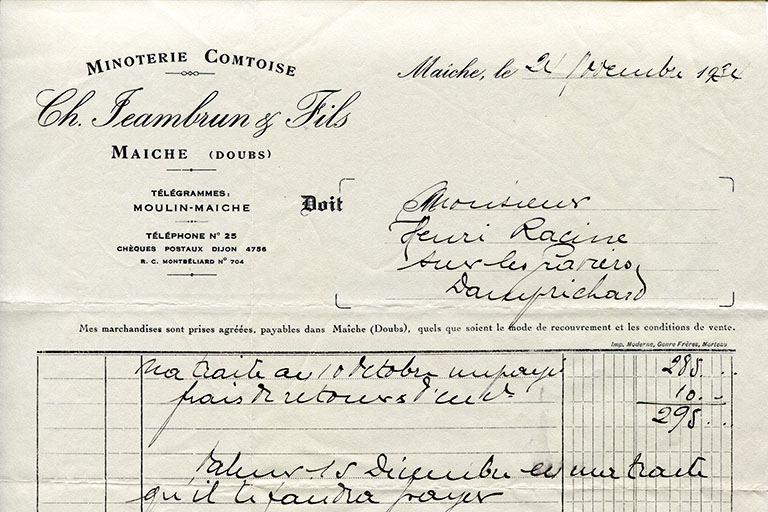 MINOTERIE COMTOISE
Ch. Jeambrun & Fils
MAICHE (DOUBS)
TÉLÉGRAMMES:
MOULIN-MAICHE
TÉLÉPHONE N° 25
CHÈQUES POSTAUX DIJON 4756
R. C. MONTBÉLIARD N° 704
Maîche, le 24 Novembre 1934
Doit
Monsieur
Henri Racine
sur les
Damprichard
Mes marchandises sont prises agréées, payables dans Maîche (Doubs), quels que soient le mode de recouvrement et les conditions de vente.
Imp. Moderne, Genre Frères, Morteau
Ma traite au 10 Octobre impayé 285..
frais de retours 10..
295..
Valeur 15 Décembre ma traite
qu'il te faudra payer